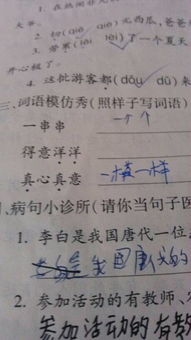 1. 在热闹非凡
2. 切(qiē qiè)完西瓜，爸爸
3. 劳累(lèi lěi)了一个夏天
开心极了。
4. 这批游客都(dōu dū)来
三、词语模仿秀(照样子写词语)
一串串 一个个
得意洋洋
真心真意 一模一样
、病句小诊所(请你当句子医
1. 李白是我国唐代一位
我国 的
2. 参加活动的有教师、
参加活动的有教